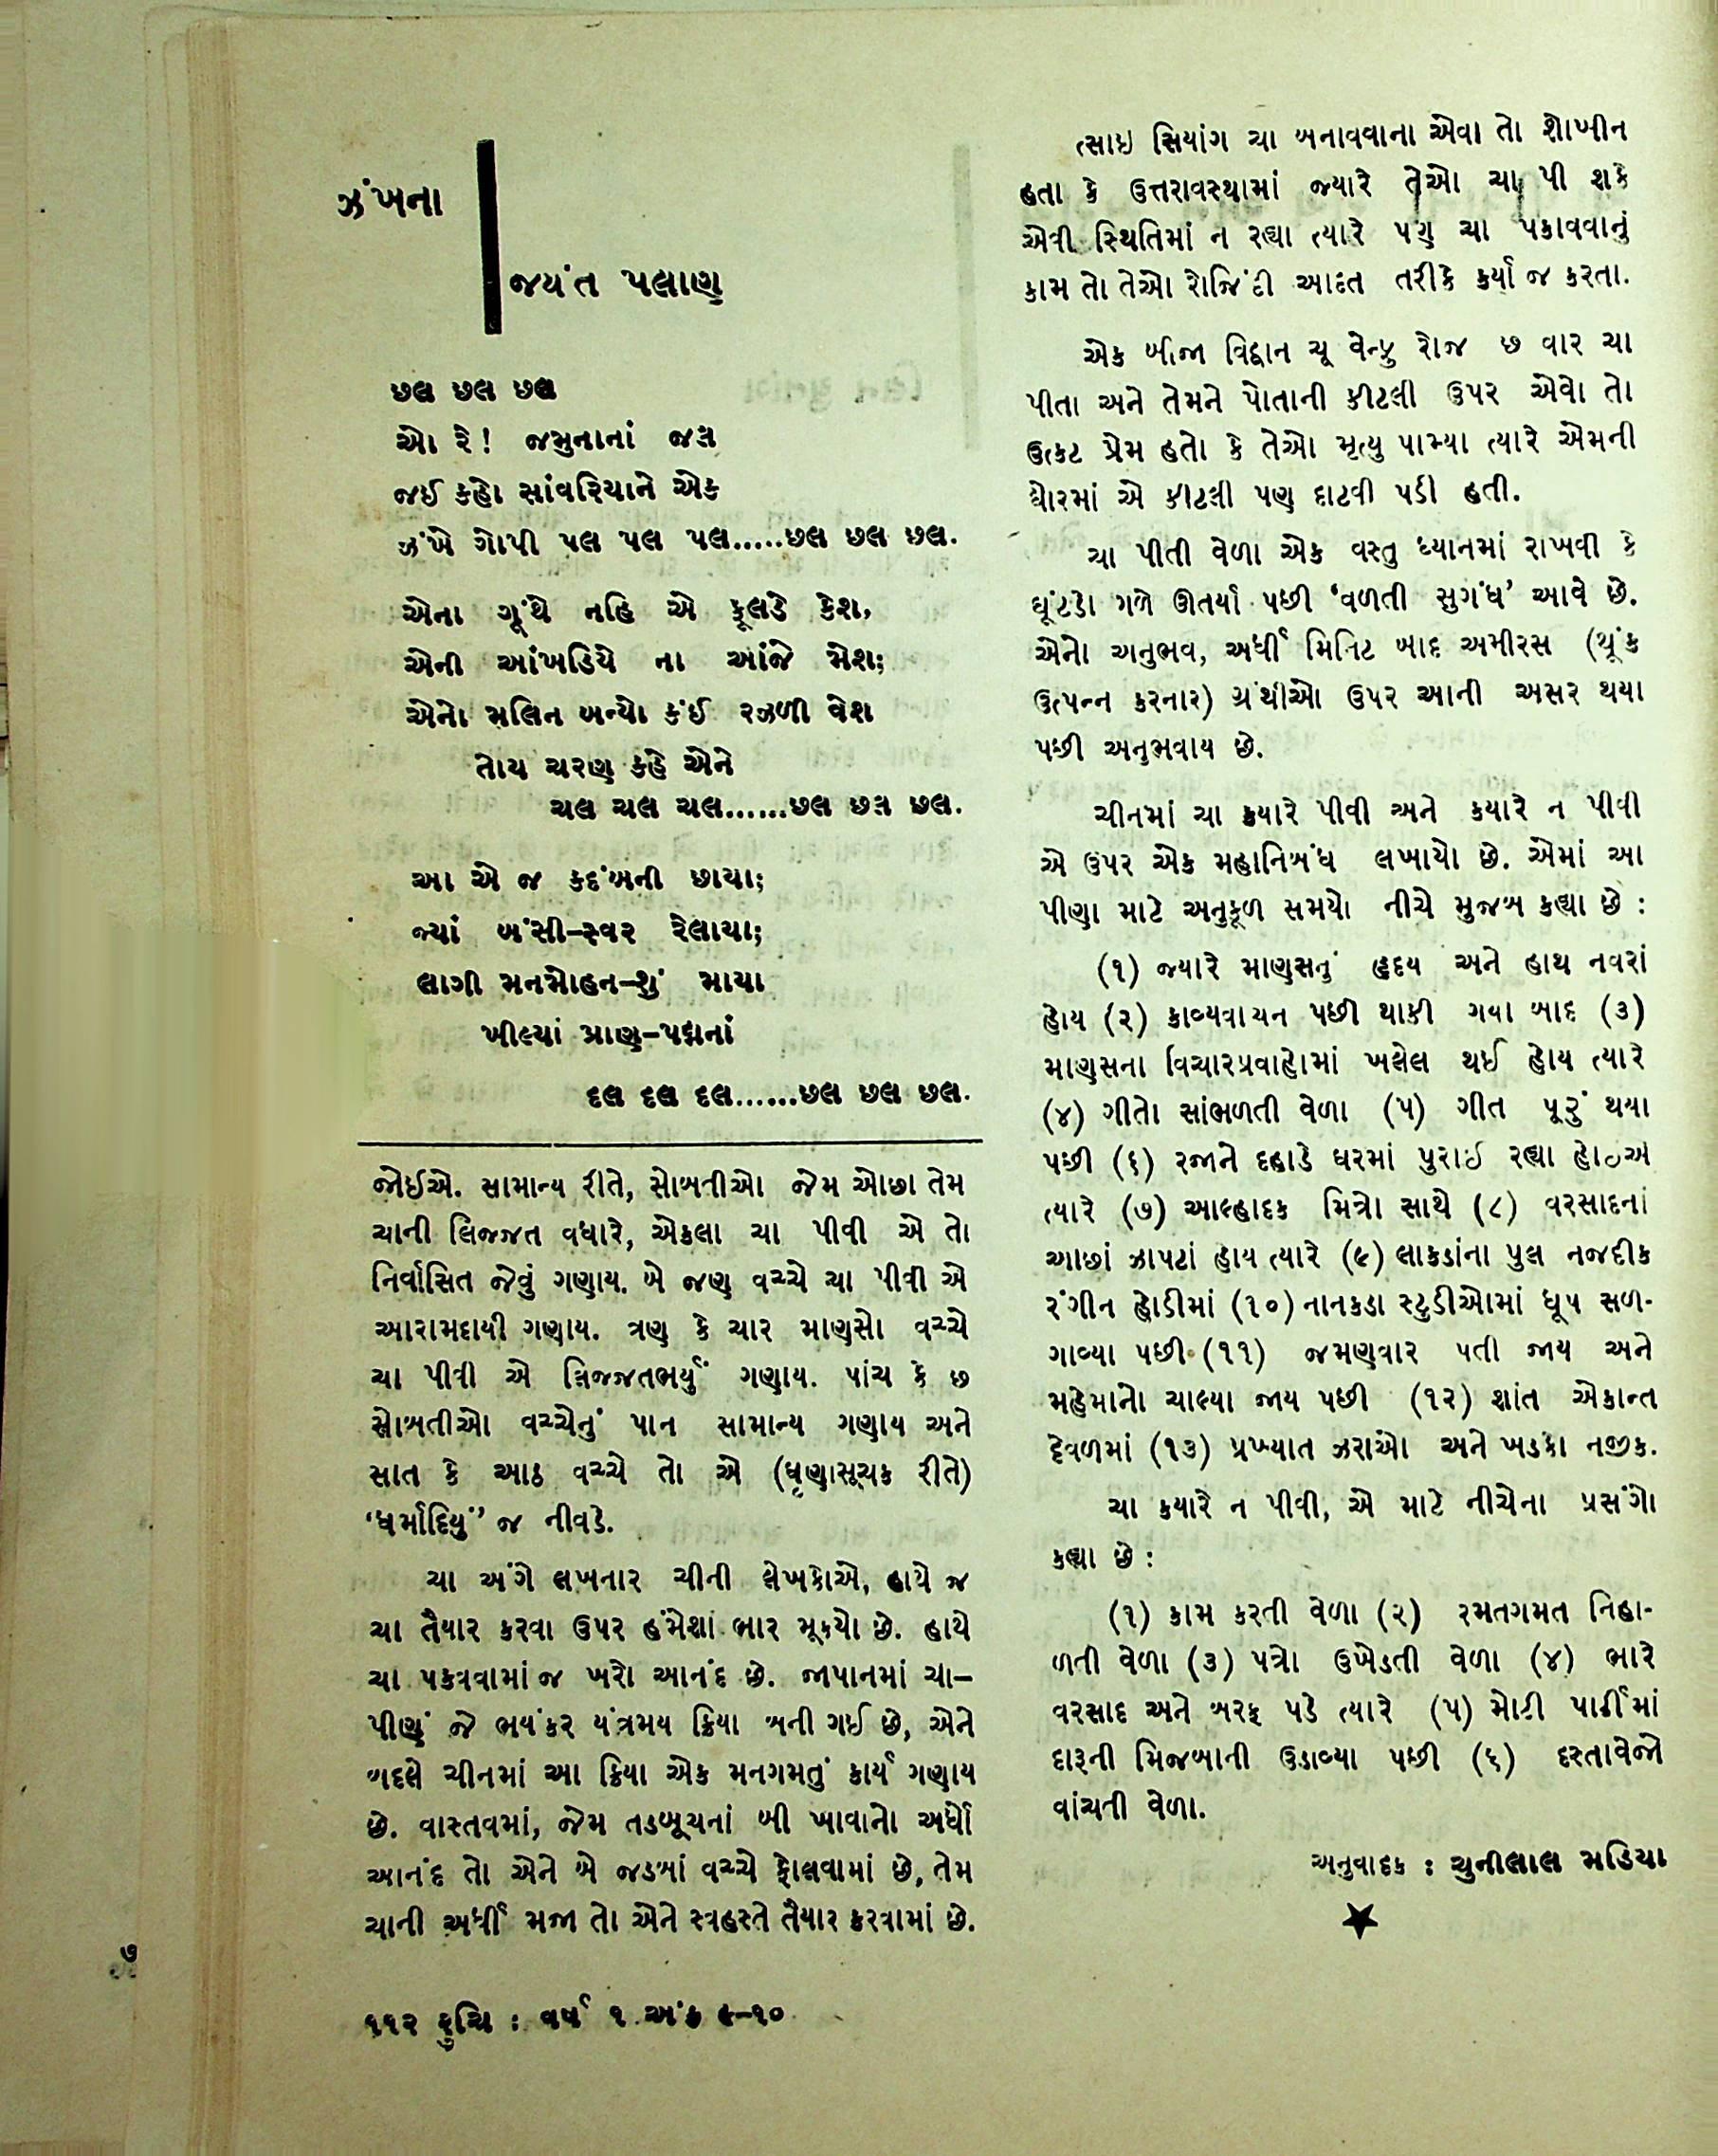 ઝંખના
જયંત પલાણ
છલ છલ છલ
ઓ રે! જમુનાનાં જળ
જઈ કહો સાંવરિયાને એક
ઝંખે ગોપી પલ પલ પલ.....છલ છલ છલ.
એના ગૂંથે નહિ એ ફૂલડે કેશ,
એની આંખડિયે ના આંજે મેશ;
એનો મલિન બન્યો કંઈ રઝળી વેશ
તોય ચરણ કહે એને
ચલ ચલ ચલ......છલ છલ છલ.
આ એ જ કદંબની છાયા;
જ્યાં બંસી-સ્વર રેલાયા;
લાગી મનમોહન-શું માયા
ખીલ્યાં પ્રાણ-પદ્મનાં
દલ દલ દલ......છલ છલ છલ.
જોઈએ. સામાન્ય રીતે, સોબતીઓ જેમ ઓછા તેમ
ચાની લિજ્જત વધારે, એકલા ચા પીવી એ તો
નિર્વાસિત જેવું ગણાય. બે જણ વચ્ચે ચા પીવી એ
આરામદાયી ગણાય. ત્રણ કે ચાર માણસો વચ્ચે
ચા પીવી એ લિજ્જતભર્યું ગણાય. પાંચ કે છ
સોબતીઓ વચ્ચેનું પાન સામાન્ય ગણાય અને
સાત કે આઠ વચ્ચે તો એ (ઘૃણાસૂચક રીતે)
‘ધર્માદિયું’ જ નીવડે.
ચા અંગે લખનાર ચીની લેખકોએ, હાથે જ
ચા તૈયાર કરવા ઉપર હંમેશાં ભાર મૂક્યો છે. હાથે
ચા પકવવામાં જ ખરો આનંદ છે. જાપાનમાં ચા-
પીણું જે ભયંકર યંત્રમય ક્રિયા બની ગઈ છે, એને
બદલે ચીનમાં આ ક્રિયા એક મનગમતું કાર્ય ગણાય
છે. વાસ્તવમાં, જેમ તડબૂચનાં બી ખાવાનો અર્ધો
આનંદ તો એને બે જડબાં વચ્ચે ફોલવામાં છે, તેમ
ચાની અર્ધી મજા તો એને સ્વહસ્તે તૈયાર કરવામાં છે.
ત્સાઇ સિયાંગ ચા બનાવવાના એવા તો શોખીન
હતા કે ઉત્તરાવસ્થામાં જ્યારે તેઓ ચા પી શકે
એવી સ્થિતિમાં ન રહ્યા ત્યારે પણ ચા પકાવવાનું
કામ તો તેઓ રોજિંદી આદત તરીકે કર્યા જ કરતા.
એક બીજા વિદ્વાન ચૂ વેન્ફુ રોજ છ વાર ચા
પીતા અને તેમને પોતાની કીટલી ઉપર એવો તો
ઉત્કટ પ્રેમ હતો કે તેઓ મૃત્યુ પામ્યા ત્યારે એમની
ઘોરમાં એ કીટલી પણ દાટવી પડી હતી.
ચા પીતી વેળા એક વસ્તુ ધ્યાનમાં રાખવી કે
ઘૂંટડો ગળે ઊતર્યા પછી ‘વળતી સુગંધ’ આવે છે.
એનો અનુભવ, અર્ધી મિનિટ બાદ અમીરસ (થૂંક
ઉત્પન્ન કરનાર) ગ્રંથીઓ ઉપર આની અસર થયા
પછી અનુભવાય છે.
ચીનમાં ચા ક્યારે પીવી અને કયારે ન પીવી
એ ઉપર એક મહાનિબંધ લખાયો છે. એમાં આ
પીણા માટે અનુકૂળ સમયો નીચે મુજબ કહ્યા છે :
(૧) જ્યારે માણસનું હૃદય અને હાથ નવરાં
હોય (૨) કાવ્યવાચન પછી થાકી ગયા બાદ (૩)
માણસના વિચારપ્રવાહોમાં ખલેલ થઈ હોય ત્યારે
(૪) ગીતો સાંભળતી વેળા (૫) ગીત પૂરું થયા
પછી (૬) રજાને દહાડે ઘરમાં પુરાઈ રહ્યા હોઇએ
ત્યારે (૭) આલ્હાદક મિત્રો સાથે (૮) વરસાદનાં
આછાં ઝાપટાં હોય ત્યારે (૯) લાકડાંના પુલ નજદીક
રંગીન હોડીમાં (૧૦) નાનકડા સ્ટુડીઓમાં ધૂપ સળ-
ગાવ્યા પછી (૧૧) જમણવાર પતી જાય અને
મહેમાનો ચાલ્યા જાય પછી (૧૨) શાંત એકાન્ત
દેવળમાં (૧૩) પ્રખ્યાત ઝરાઓ અને ખડકો નજીક.
ચા કયારે ન પીવી, એ માટે નીચેના પ્રસંગો
કહ્યા છે :
(૧) કામ કરતી વેળા (૨) રમતગમત નિહા-
ળતી વેળા (૩) પત્રો ઉખેડતી વેળા (૪) ભારે
વરસાદ અને બરફ પડે ત્યારે (૫) મોટી પાર્ટીમાં
દારૂની મિજબાની ઉડાવ્યા પછી (૬) દસ્તાવેજો
વાંચતી વેળા.
અનુવાદક : ચુનીલાલ મડિયા
૧૧૨ રુચિ : વર્ષ ૧ અંક ૯-૧૦